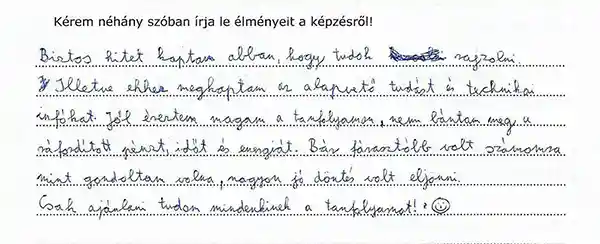 Kérem néhány szóban írja le élményeit a képzésről!
Biztos hitet kaptam abban, hogy tudok rajzolni.
Illetve ehhez megkaptam az alapvető tudást és technikai
infókat. Jól éreztem magam a tanfolyamon, nem bántam meg a
ráfordított pénzt, időt és energiát. Bár fárasztóbb volt számomra
mint gondoltam volna, nagyon jó döntés volt eljönni.
Csak ajánlani tudom mindenkinek a tanfolyamot! ☺